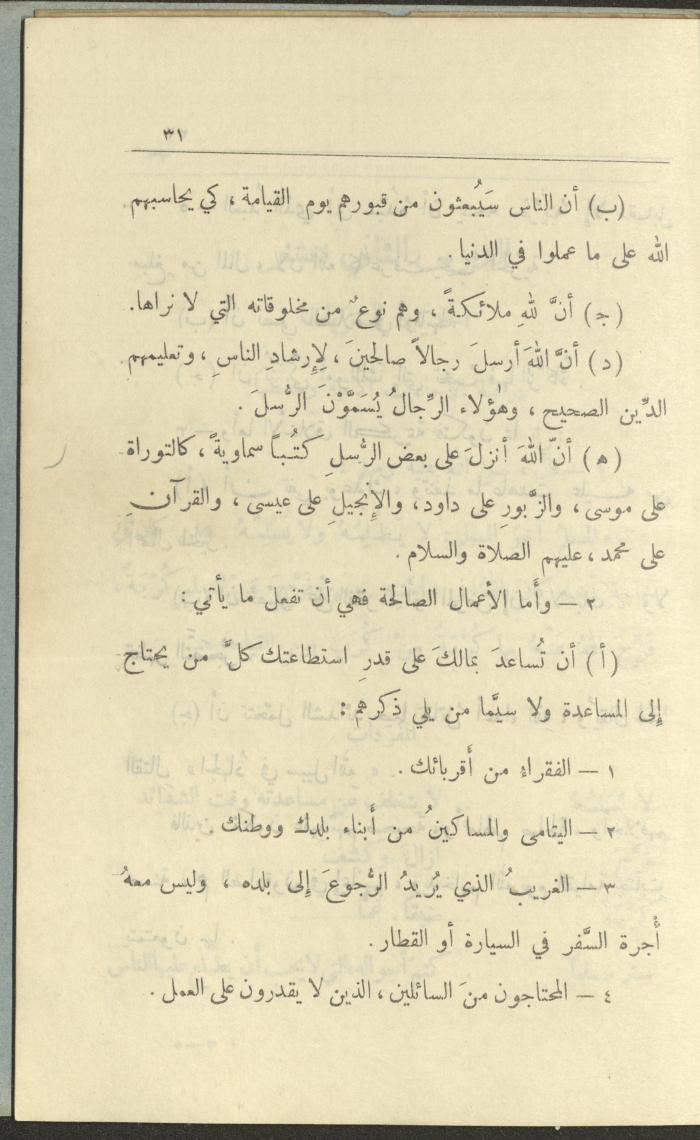 ٣١
(ب) أن الناس سَيُبعثون من قبورهم يوم القيامة ، كي يحاسبهم
الله على ما عملوا في الدنيا .
(ج) أنَّ للهِ ملائكةً ، وهم نوعٌ من مخلوقاته التي لا نراها.
(د) أنَّ اللهَ أرسلَ رجالاً صالحينَ ، لِإرشادِ الناسِ ، وتعليمهم
الدِّين الصحيح ، وهٰؤلاء الرِّجالُ يُسَمَّوْنَ الرُّسلَ .
(ه) أنّ اللهَ أنزلَ على بعض الرُّسلِ كتُباً سماويةً ، كالتوراة
على موسى ، والزَّبورِ على داود، والإنجيلِ على عيسى ، والقرآنِ
على محمد ، عليهم الصلاة والسلام .
٢ – وأَما الأعمال الصالحة فهي أن تفعل ما يأتي :
(أ) أن تُساعدَ بمالكَ على قدرِ استطاعتك كلَّ من يحتاج
إلى المساعدة ولا سيَّما من يلي ذكرهم :
١ – الفقراء من أَقربائك .
٢ – اليتامى والمساكينُ من أَبناء بلدك ووطنك .
٣ – الغريبُ الذي يُريدُ الرُّجوعَ إلى بلده ، وليس معهُ
أُجرة السَّفر في السيارة أو القطار .
٤ – المحتاجون منَ السائلين ، الذين لا يقدرون على العمل .